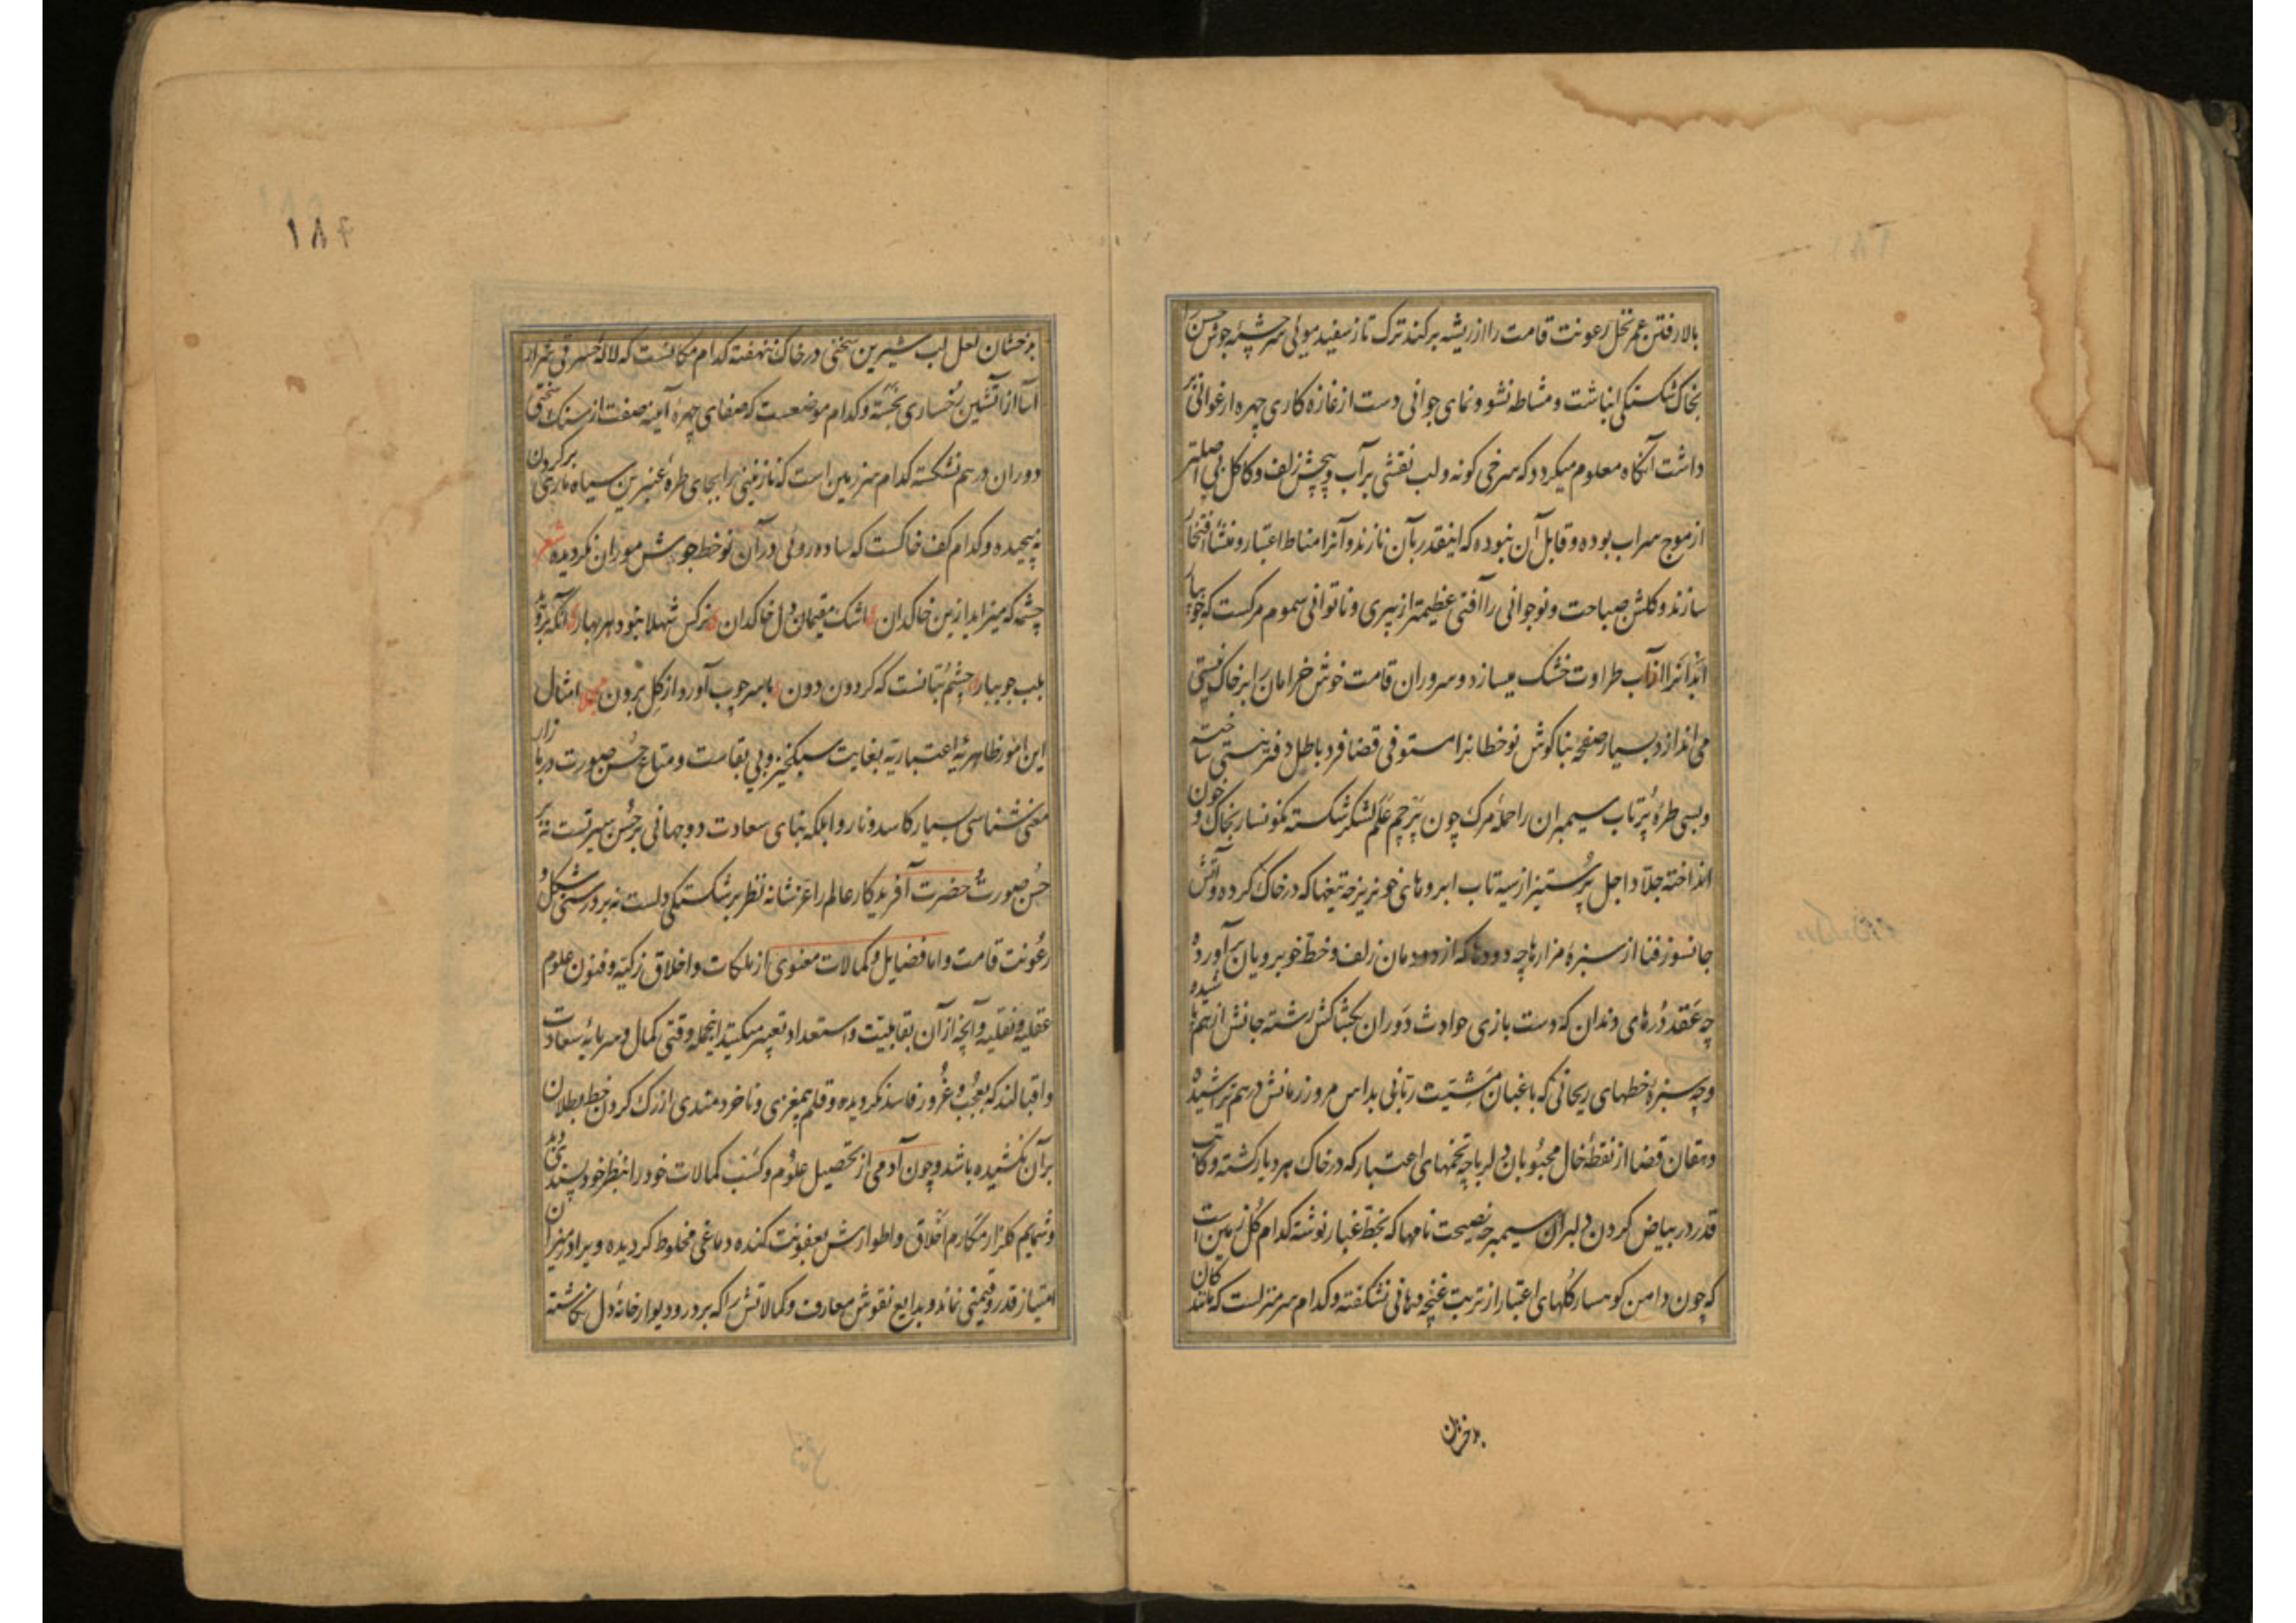 بالا رفتن عمر نخل رعونت قامت را از ریشه برکند ترک تاز سفید موئی سرچشمه جوش حسن را
بخاک شکستگی انباشت و مشاطه نشو و نمای جوانی دست از غازه کاری چهره ارغوانی بر
داشت آنگاه معلوم میکردد که سرخی کونه و لب نقشی بر آب و پیچش زلف و کاکل بی اصلتر
از موج سراب بوده و قابل آن نبوده که اینقدر بآن نازند و آنرا مناط اعتبار و منشأ افتخار
سازند و کلشن صباحت و نوجوانی را آفتی عظیمتر از پیری و ناتوانی سموم مرکست که جویبار
اندانرا از آب طراوت خشک میسازد و سروران قامت خوش خرامان را بر خاک نیستی
می اندازد بسیار صفحه بناکوش نوخطانرا مستوفی قضا فرد باطل دفتر هستی ساخته
و بسی طره پرتاب سیمبران را حمله مرک چون پرچم علم لشکر شکسته نکونسار بخاک و خون
انداخته جلاد اجل پرستیز از سیه تاب ابروهای خونریز چه تیغها که در خاک کرده و آتش
جانسوز فنا از سبزه مزارها چه دودها که از دودمان زلف و خط خوبرویان برآورده
چه عقد درهای دندان که دست بازی حوادث دوران بکشاکش رشته جانش از هم پاشیده
و چه سبزه خطهای ریحانی که باغبان مشیت ربانی بداس مرور زمانش درهم تراشیده
دهقان قضا از نقطه خال محبوبان دلربا چه تخمهای اعتبار که در خاک هر دیار کشته و کاتب
قدر در بیاض کردن دلبران سیمبر چه نصیحت نامها که بخط غبار نوشته کدام کل زمین است
که چون دامن کوهسار کلهای اعتبار از تربت غنچه دهانی نشکفته و کدام سر منزلست که مانند کان
بدخشان
۱۸۴
بدخشان لعل لب شیرین سخنی در خاک ننهفته کدام مکانست که لاله حسرتی شرار
آسا از آتشین رخساری نجسته و کدام موضعست که صفای چهره آینه صفت از سنک سختی
دوران درهم نشکسته کدام سرزمین است که نازنینی را بجای طره عنبرین سیاه ماری بر کردن
نه پیچیده و کدام کف خاکست که ساده روئی در آن نوخط جوشش موران نکردیده شعر
چشمه که میزاید ازین خاکدان اشک مقیمان دل خاکدان نرکس شهلا نبود هر بهار آنکه بروید
بلب جویبار چشم بتانست که کردون دون با سر چوب آورد از کل برون مجملا امثال
این امور ظاهریه اعتباریه بغایت سبکخیز و بی بقاست و متاع حسن صورت در بازار
معنی شناسی بسیار کاسد و ناروا بلکه بنای سعادت دو جهانی بر حسن سیرتست نه بر
حسن صورت حضرت آفریدکار عالم را عز شانه نظر بر شکستکی دلست نه بر درستی شکل و
رعونت قامت و اما فضایل و کمالات معنوی از ملکات و اخلاق زکیه و فنون علوم
عقلیه و نقلیه و آنچه از آن بقابلیت و استعداد تعبیر میکنید اینجمله وقتی کمال و سرمایه سعادت
و اقبالند که بعجب و غرور فاسد نکردیده و قلم بیمغزی و ناخردمندی از رک کردن خط بطلان
بر آن نکشیده باشد و چون آدمی از تحصیل علوم و کسب کمالات خود را بنظر خود پسندی دید
و شمایم کلزار مکارم اخلاق و اطوارش بعفونت کنده دماغی مخلوط کردیده ویرا در میزان
امتیاز قدر و قیمتی نماند و بدایع نقوش معارف و کمالاتش را که بر در و دیوار خانه دل نکاشته